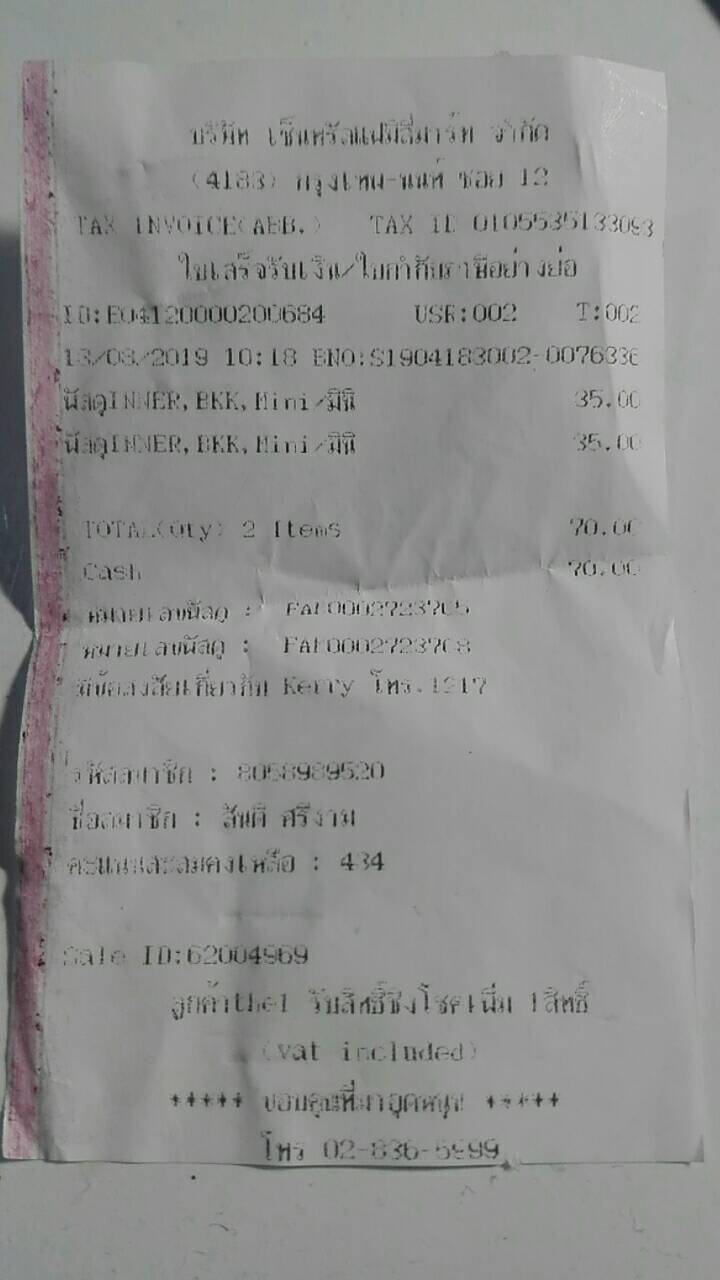 บริษัท เซ็นทรัลแฟมิลี่มาร์ท จำกัด
(4183) กรุงเทพ-นนท์ ซอย 12
TAX INVOICE(ABB.) TAX ID 0105535133093
ใบเสร็จรับเงิน/ใบกำกับภาษีอย่างย่อ
ID:E04120000200684 USR:002 T:002
13/03/2019 10:18 BNO:S1904183002-0076336
พัสดุINNER,BKK,Mini/มินิ 35.00
พัสดุINNER,BKK,Mini/มินิ 35.00
TOTAL(Qty) 2 Items 70.00
Cash 70.00
หมายเลขพัสดุ :
หมายเลขพัสดุ :
มีข้อสงสัยเกี่ยวกับ Kerry โทร.1217
รหัสสมาชิก : 8058989520
ชื่อสมาชิก : สันติ ศรีงาม
คะแนนสะสมคงเหลือ : 434
Sale ID:62004969
ลูกค้าthe1 รับสิทธิ์ชิงโชคเพิ่ม 1สิทธิ์
(vat included)
***** ขอบคุณที่มาอุดหนุน *****
โทร 02-836-5999